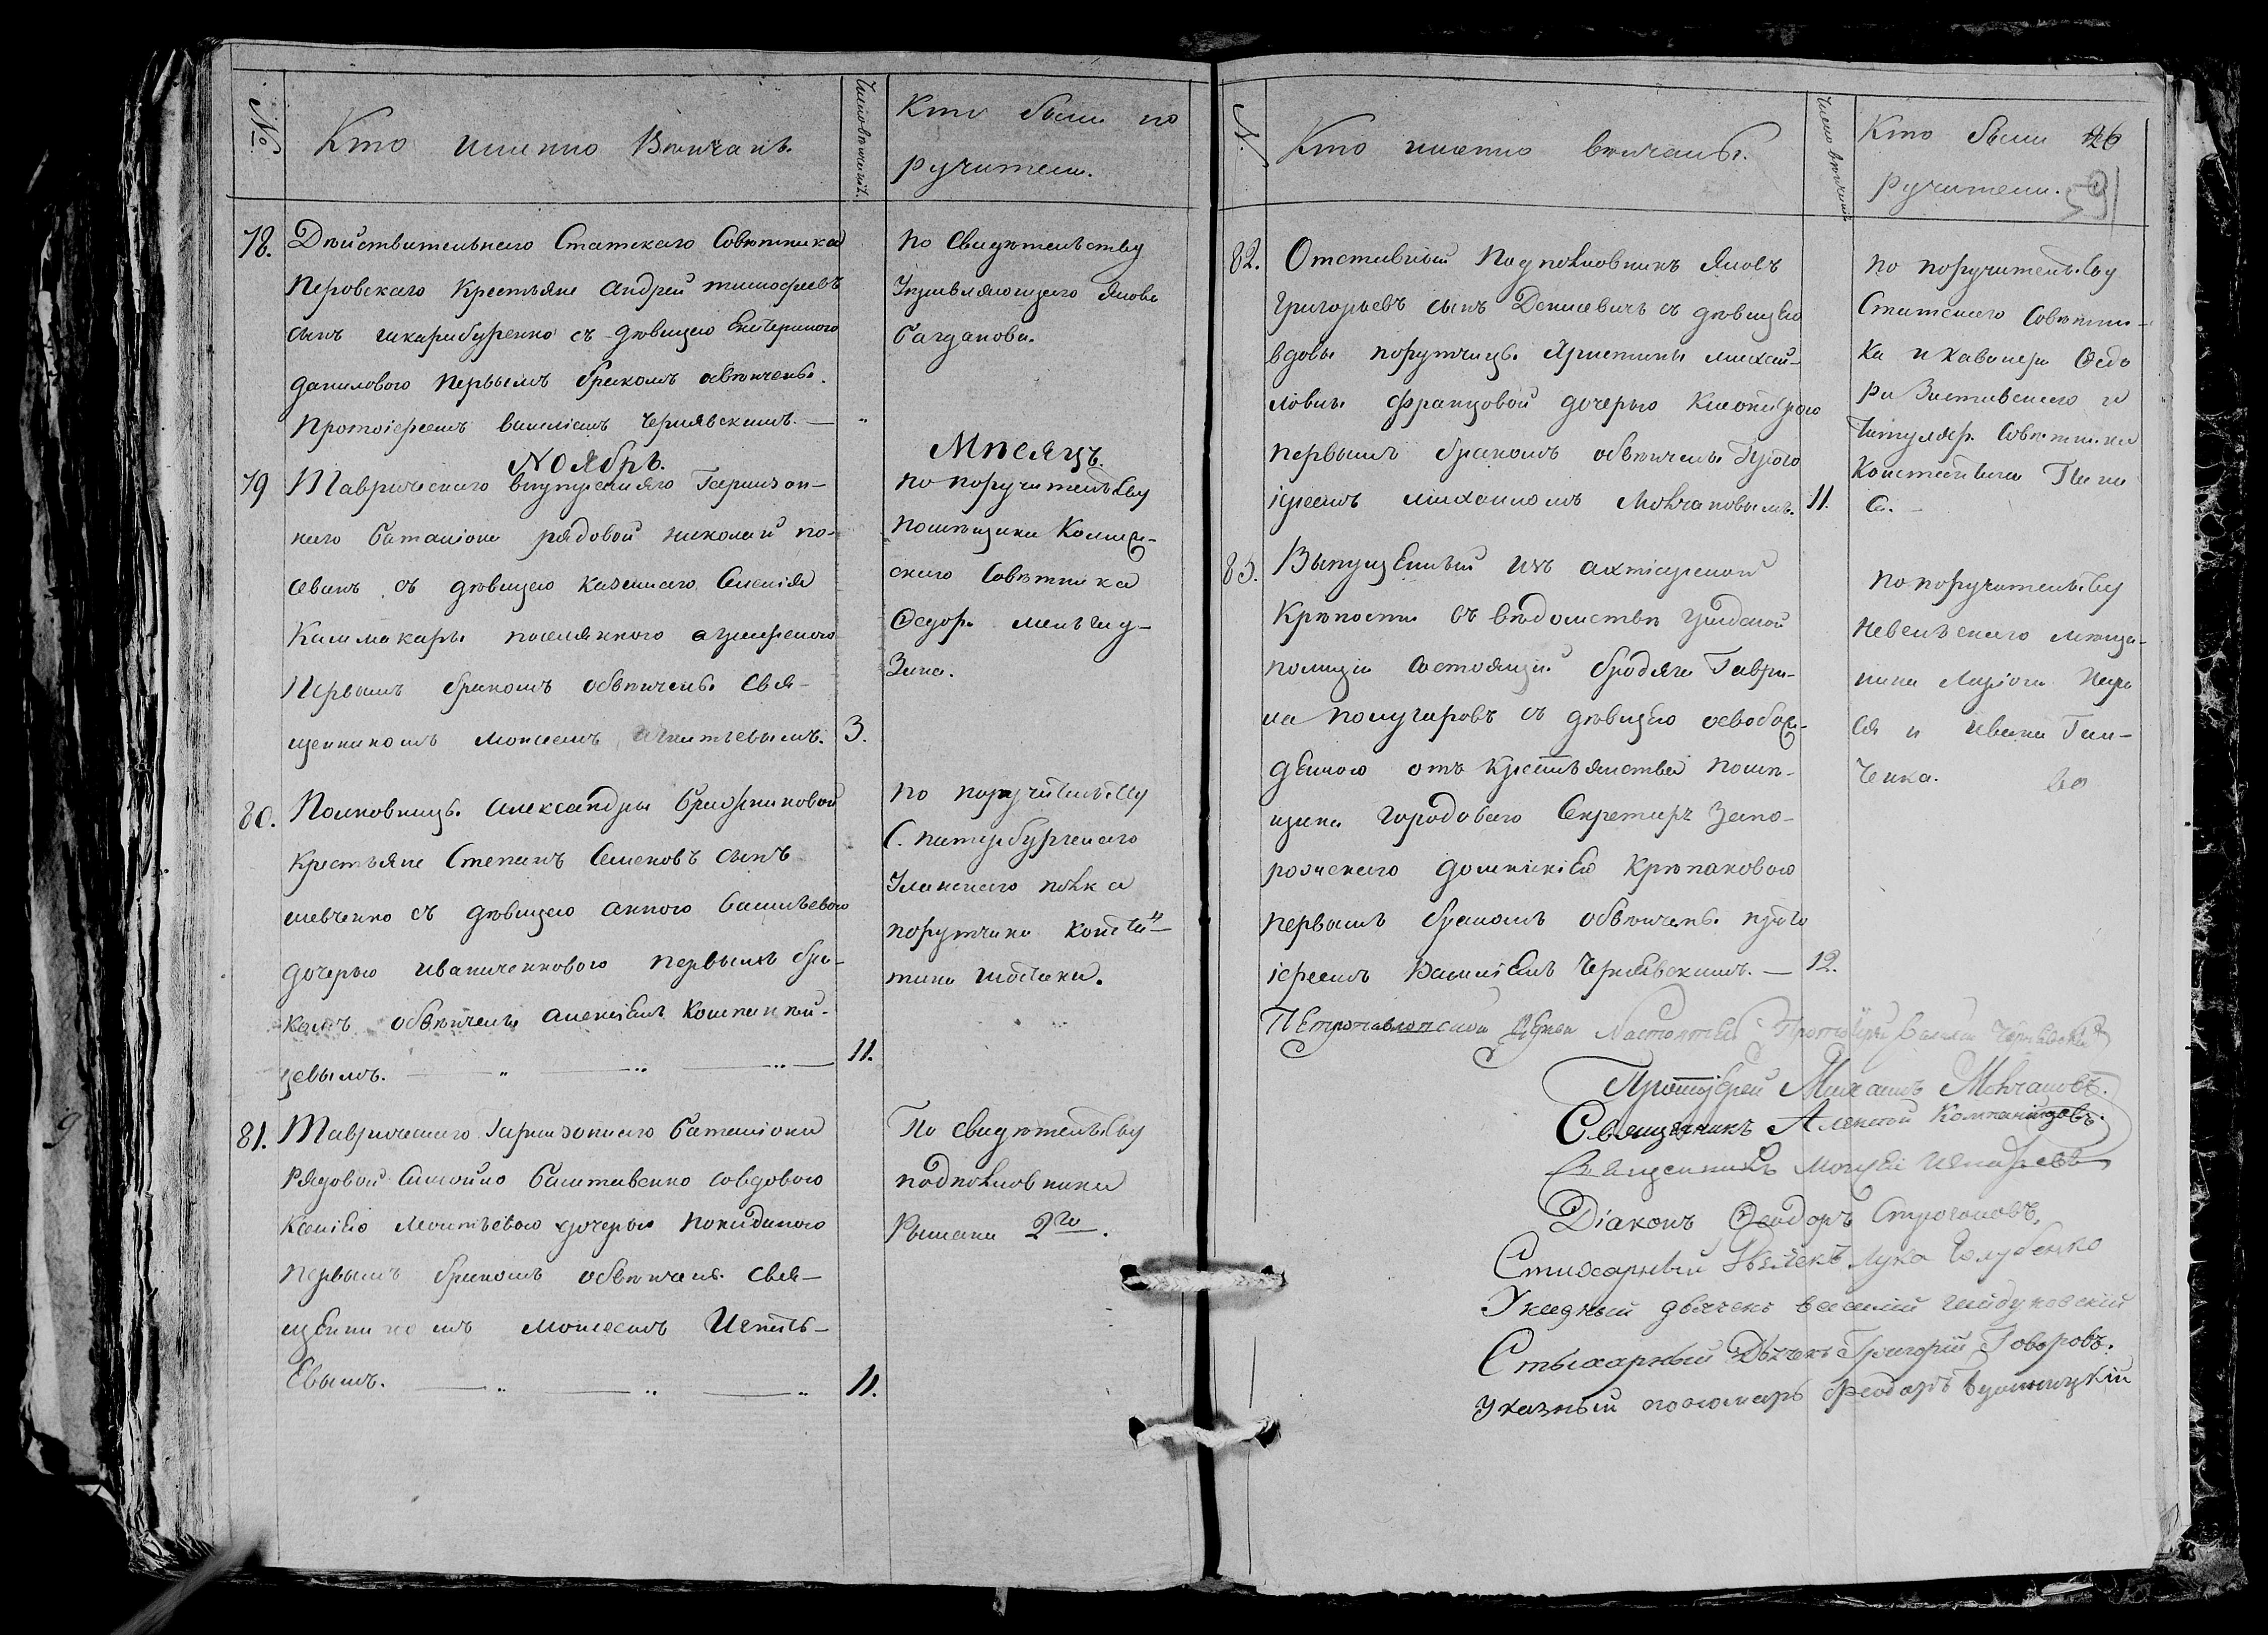 №
Кто именно Венчанъ.
Число венчанія.
Кто были по
ручители.
78.
Дѣйствительнаго Статскаго Совѣтника
Перовскаго Крестьяне андрей тимофеевъ
сынъ шкарибуренко съ дѣвицею Екатериною
даниловою первымъ бракомъ обвѣнчены.
Протоіереемъ василіемъ Чернявскимъ. —
по свидѣтельству
Управляющаго Якова
багданова.
Ноябрь.
Мѣсяцъ.
79
Таврическаго внутренняго Гарнизон-
наго баталіона рядовой николай по-
севанъ съ дѣвицею казеннаго Селенія
первымъ бракомъ обвѣнчены. Свя-
щенникомъ моисеемъ Игнатьевымъ.
3.
по поручительству
помѣщика Коллеж-
скаго Совѣтника
Федора
зина.
80.
Полковницы. александры
крестьяне Степанъ Семеновъ сынъ
шевченко съ дѣвицею анною васильевою
дочерью иваниченковою первымъ бра-
комъ обвѣнчены алексѣемъ Компаней-
цевымъ.
11.
по поручительству
С. патербургскаго
Уланскаго полка
порутчика констан-
тина
81.
Таврическаго Гарнизоннаго баталіона
Рядовой Самойло баштавенко совдовою
Ксеніею дочерью
первымъ бракомъ обвѣнчаны. Свя-
щенникомъ моисеемъ Игнать-
Евымъ.
11.
По свидѣтельству
подполковника
2го.
№.
Кто именно венчаны.
Число венчанія
Кто были по
26
ручители.
59
82.
Отставный Подполковникъ Яковъ
григорьевъ сынъ Денисевичъ съ дѣвицею
вдовы порутчицы. Христины михай-
ловны францовой дочерью
первымъ бракомъ обвѣнчены. Прото
іереемъ михаиломъ Молчановымъ.
11.
по поручительству
Статскаго Совѣтни-
ка и кавалера Федо
ра и
Титуляр. Совѣтника
Константина
83.
Выпущенный изъ ахтіарской
Крѣпости въ вѣдомство градской
полиціи состоящій бродяга Гаври-
ла получаровъ съ дѣвицею освобож-
денною отъ крестьянства помѣ-
щика городоваго Секретаря Запо-
рожскаго домникіею крѣпаковою
первымъ бракомъ обвѣнчены. прото
іереемъ Василіемъ Чернявскимъ. —
12.
по поручительству
невельскаго мещa-
нина
ся и ивана Ган-
чика.
Петропавловской Церкви Настоятель Протоіерей Василій Чернявскій
Протоіерей Михаилъ Молчановъ.
Священникъ Алексѣй Компанейцовъ.
Священникъ Моисей Игнатьевъ
Діаконъ Феодоръ Строгоновъ.
Стихарный Дьячекъ Лука Голубенко
Указный дьячекъ василій
Стыхарный Дьячекъ Григорій Говоровъ.
Указный пономарь Феодоръ